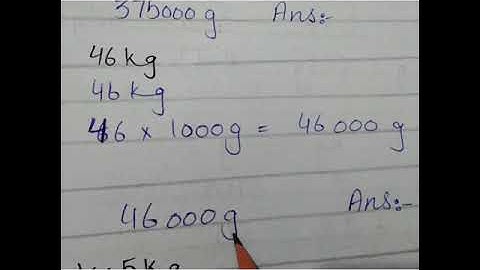 375000g Ans:-
46 kg
46 kg
46 x 1000g = 46000 g
46000g Ans:-
5kg